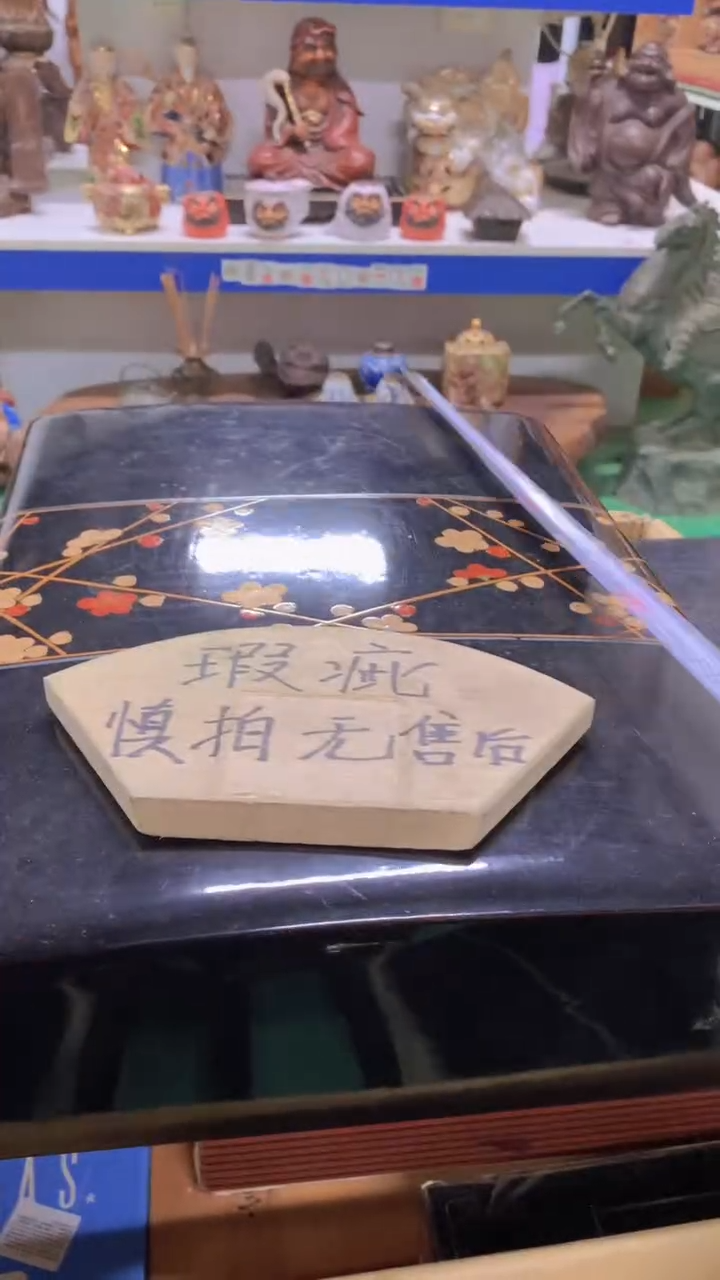 瑕疵
慎拍无售后
AS